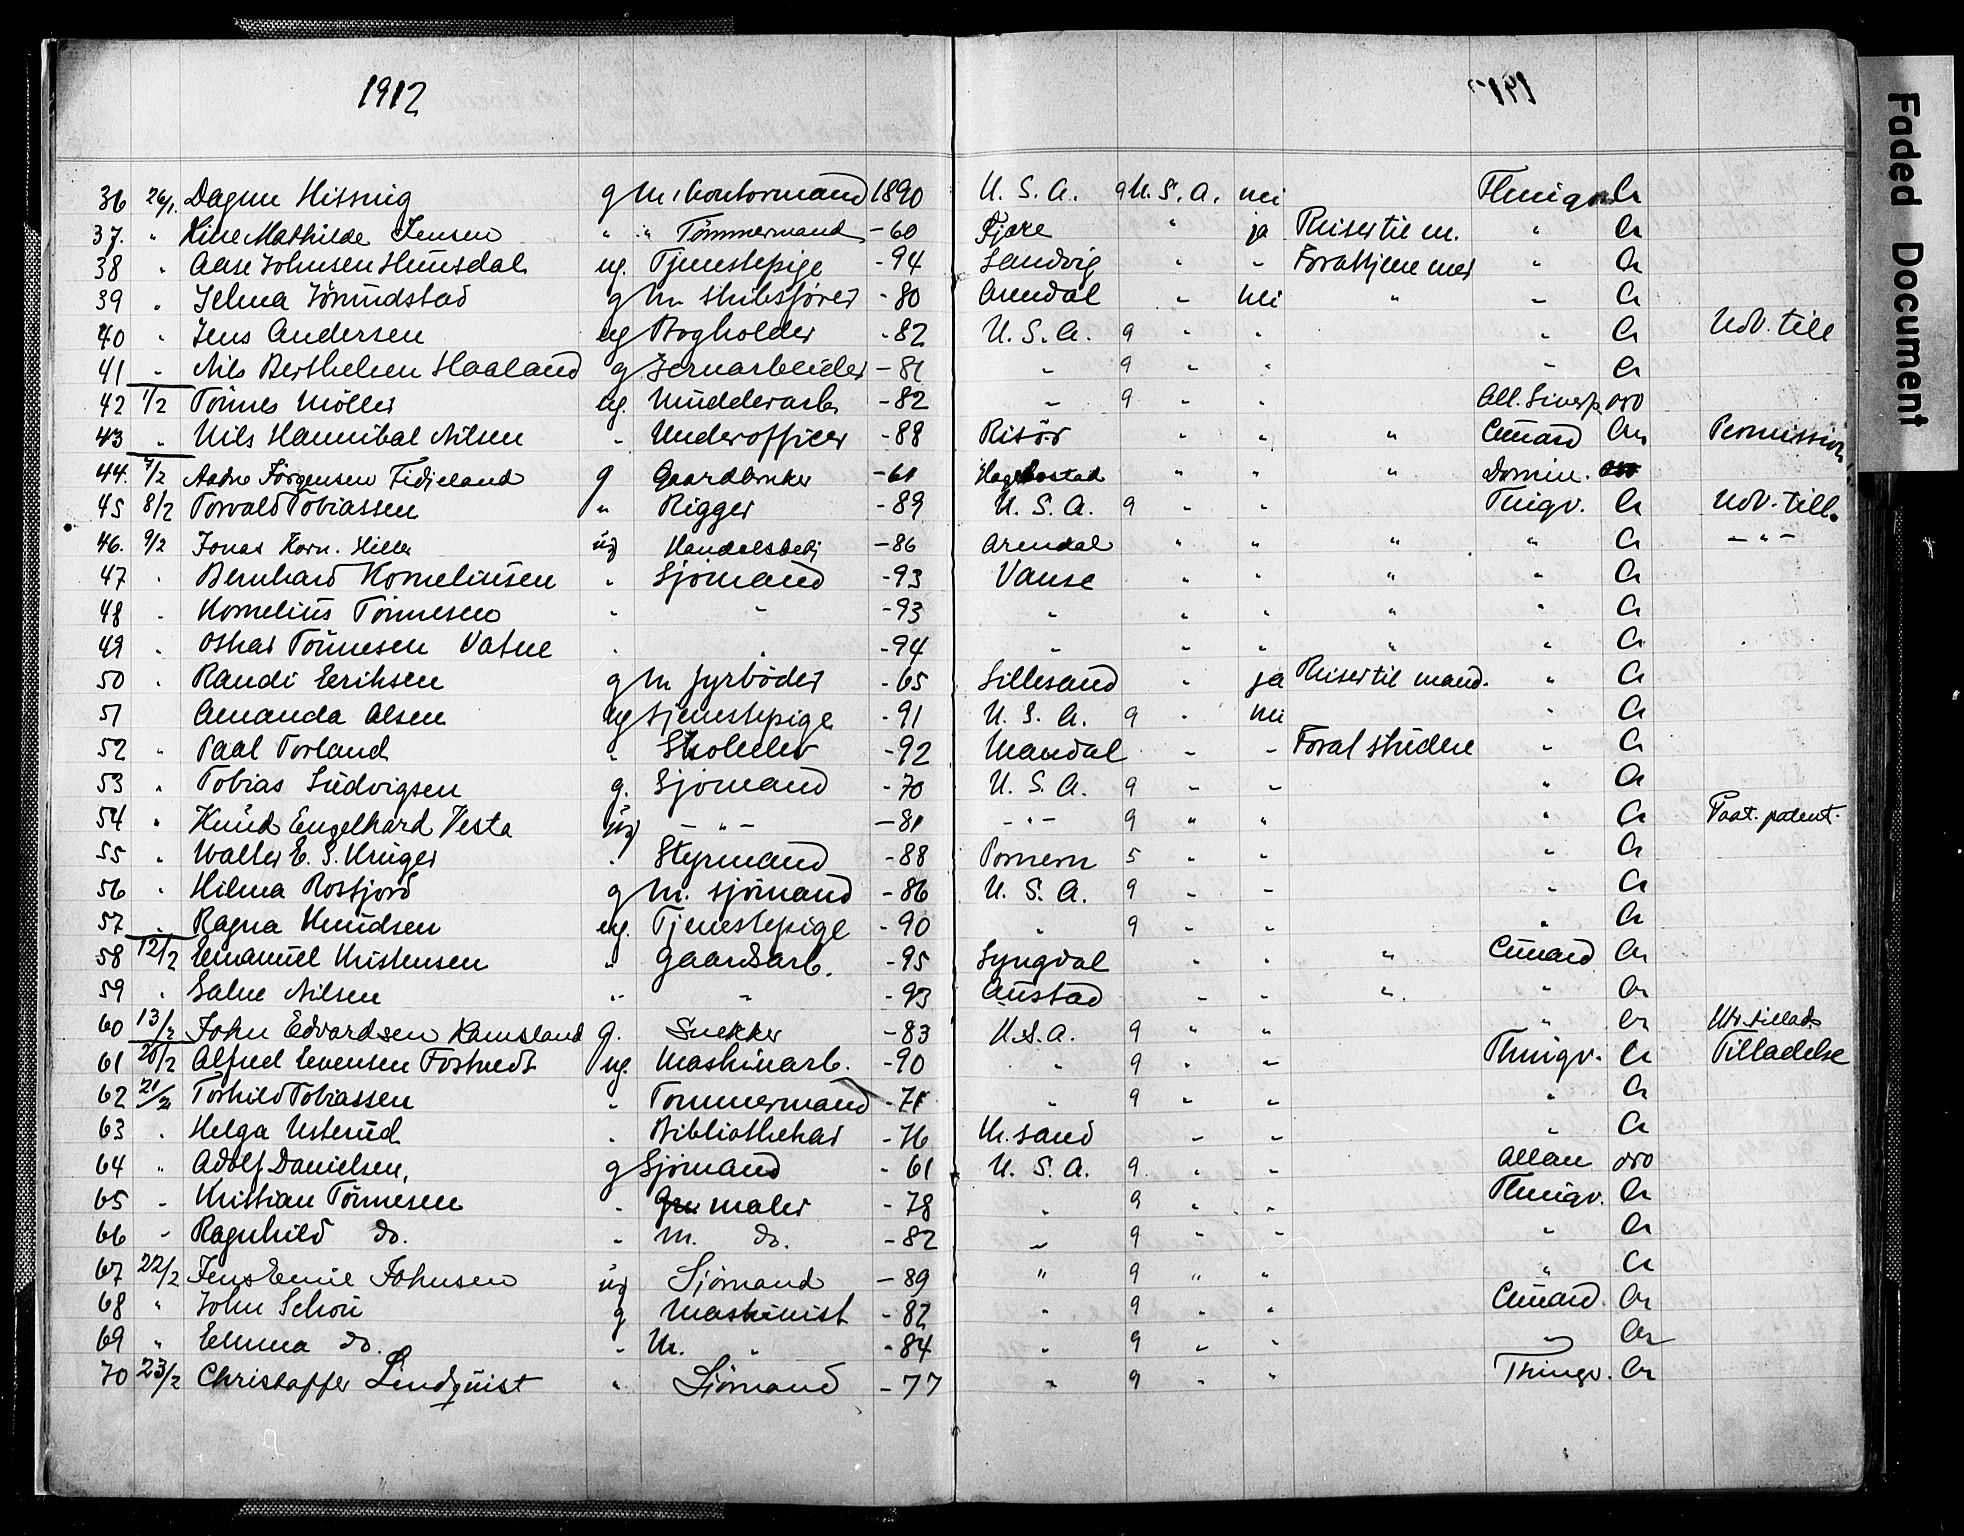 1912
36 26/1. Dagun Hissnig g M. Contormand 1890 U. S. A. 9 U. S. A. nei Thingv. Cr
37. " Line Mathilde Jensen " " Tömmermand - 60 Fjære " ja Reiser til m. " Cr
38 " Aase Johnsen Hunsdal ug. Tjenestepige - 94 Landvig " " For at tjene mer " Cr
39 " Selma Jörundstad g M. Skibsförer - 80 Arendal " nei " " Cr
40 " Jens Andersen ug Bogholder - 82 U. S. A. 9 " " " Cr Udv. till
41 " Nils Berthelsen Haaland g Jernarbeider - 81 " 9 " " " Cr
42 1/2 Tönnes Möller ug. Mudderarb. - 82 " 9 " " All. Liverp. oro
43 " Nils Hannibal Nilsen " Underofficer - 88 Risör " " " Cunard Cr Permission
44. 7/2 Aadne Jörgensen Fidjeland g Gaardbruker - 61 Hægebostad " " " Domin.
45 8/2 Torvald Tobiassen " Rigger - 89 U. S. A. 9 " " Tingv. Cr Udv. till.
46. 9/2 Jonas Korn. Hille ug Handelsbetj - 86 Arendal " " " " Cr - " -
47 " Bernhard Korneliusen " Sjömand - 93 Vanse " " " " Cr
48 " Kornelius Tönnesen " " - 93 " " " " " Cr
49 " Oskar Tönnesen Vatne " " - 94 " " " " " Cr
50 " Randi Eriksen g M fyrböder - 65 Lillesand " ja Reiser til mand. " Cr
51 Amanda Olsen ug Tjenestepige - 91 U. S. A. 9 " nei " Cr
52 " Paal Torland " Skoleelev - 92 Mandal " " For at studere " Cr
53 " Tobias Ludvigsen g. Sjömand - 70 U. S. A. 9 " " " Cr
54 " Knud Engelhard Vesta ug - " - - 81 - " - 9 " " " Cr Paat. patent.
55 " Walter E. S. Krüger " Styrmand - 88 Pomern 5 " " " Cr
56 " Hilma Rosfjord g M. sjömand - 86 U. S. A. 9 " " " Cr
57 " Ragna Knudsen ug. Tjenestepige - 90 " 9 " " " Cr
58 12/2 Emanuel Kristensen " Gaardsarb. - 95 Lyngdal " " " Cunard Cr
59 " Salve Nilsen " " - 93 Austad " " " " Cr
60 13/2 John Edvardsen Kamsland g. Snekker - 83 U. S. A. 9 " " " Cr Utv. tillads
61 20/2 Alfred Evensen Fostvedt ug. Maskinarb. - 90 " 9 " " Thingv. Cr Tilladelse
62 21/2 Torhild Tobiassen " Tommermand - 71 " 9 " " " Cr
63 " Helga Usterud " Bibliothekar - 76 Kr. sand " " " Cr
64 " Adolf Danielsen, g Sjömand - 61 U. S. A. 9 " " Allan oro
65 " Kristian Tönnesen " maler - 78 " 9 " " Thingv. Cr
66 " Ragnhild do. " M. do. - 82 " 9 " " " Cr
67 22/2 Jens Emil Johnsen ug Sjömand - 89 " 9 " " " Cr
68 " John Schou g Maskinist - 82 " 9 " " Cunard. Cr
69 " Emma do. " M. " - 84 " 9 " " " Cr
70 23/2 Christoffer Lindquist " Sjömand - 77 " 9 " " Thingv. Cr
Faded Document